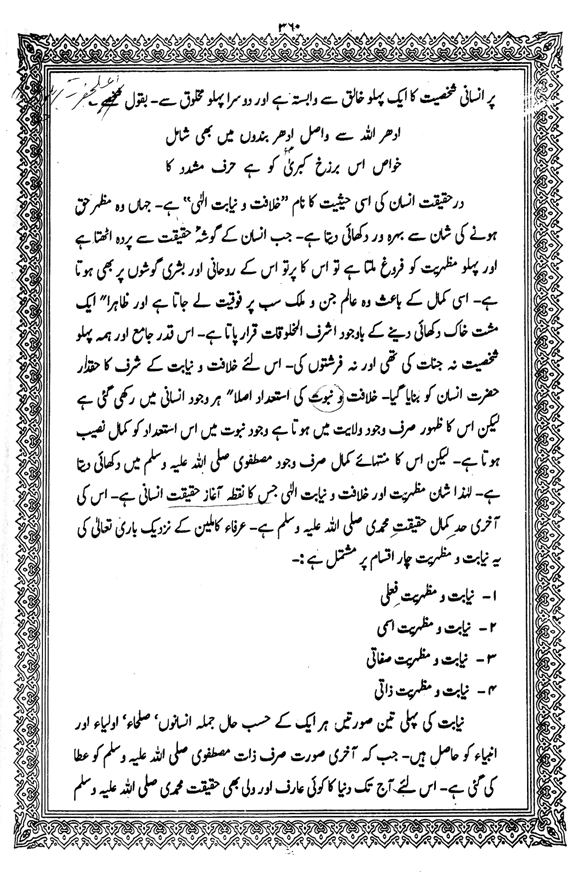 ۳۶۰
پر انسانی شخصیت کا ایک پہلو خالق سے وابستہ ہے اور دوسرا پہلو مخلوق سے۔ بقول
ادھر اللہ سے واصل ادھر بندوں میں بھی شامل
خواص اس برزخ کبریٰ کو ہے حرف مشدد کا
درحقیقت انسان کی اسی حیثیت کا نام ”خلافت و نیابت الٰہی“ ہے۔ جہاں وہ مظہر حق
ہونے کی شان سے بہرہ ور دکھائی دیتا ہے۔ جب انسان کے گوشہٴ حقیقت سے پردہ اٹھتا ہے
اور پہلو مظہریت کو فروغ ملتا ہے تو اس کا پرتو اس کے روحانی اور بشری گوشوں پر بھی ہوتا
ہے۔ اسی کمال کے باعث وہ عالم جن و ملک سب پر فوقیت لے جاتا ہے اور ظاہرا" ایک
مشت خاک دکھائی دینے کے باوجود اشرف المخلوقات قرار پاتا ہے۔ اس قدر جامع اور ہمہ پہلو
شخصیت نہ جنات کی تھی اور نہ فرشتوں کی۔ اس لئے خلافت و نیابت کے شرف کا حقدار
حضرت انسان کو بنایا گیا۔ خلافت و نبوت کی استعداد اصلا" ہر وجود انسانی میں رکھی گئی ہے
لیکن اس کا ظہور صرف وجود ولایت میں ہوتا ہے وجود نبوت میں اس استعداد کو کمال نصیب
ہوتا ہے۔ لیکن اس کا منتہائے کمال صرف وجود مصطفوی صلی اللہ علیہ وسلم میں دکھائی دیتا
ہے۔ لہٰذا شان مظہریت اور خلافت و نیابت الٰہی جس کا نقطہ آغاز حقیقت انسانی ہے۔ اس کی
آخری حد کمال حقیقت محمدی صلی اللہ علیہ وسلم ہے۔ عرفاء کاملین کے نزدیک باری تعالٰی کی
یہ نیابت و مظہریت چار اقسام پر مشتمل ہے :۔
۱۔ نیابت و مظہریت فعلی
۲۔ نیابت و مظہریت اسمی
۳۔ نیابت و مظہریت صفاتی
۴۔ نیابت و مظہریت ذاتی
نیابت کی پہلی تین صورتیں ہر ایک کے حسب حال جملہ انسانوں‘ صلحاء‘ اولیاء اور
انبیاء کو حاصل ہیں۔ جب کہ آخری صورت صرف ذات مصطفوی صلی اللہ علیہ وسلم کو عطا
کی گئی ہے۔ اس لئے آج تک دنیا کا کوئی عارف اور ولی بھی حقیقت محمدی صلی اللہ علیہ وسلم